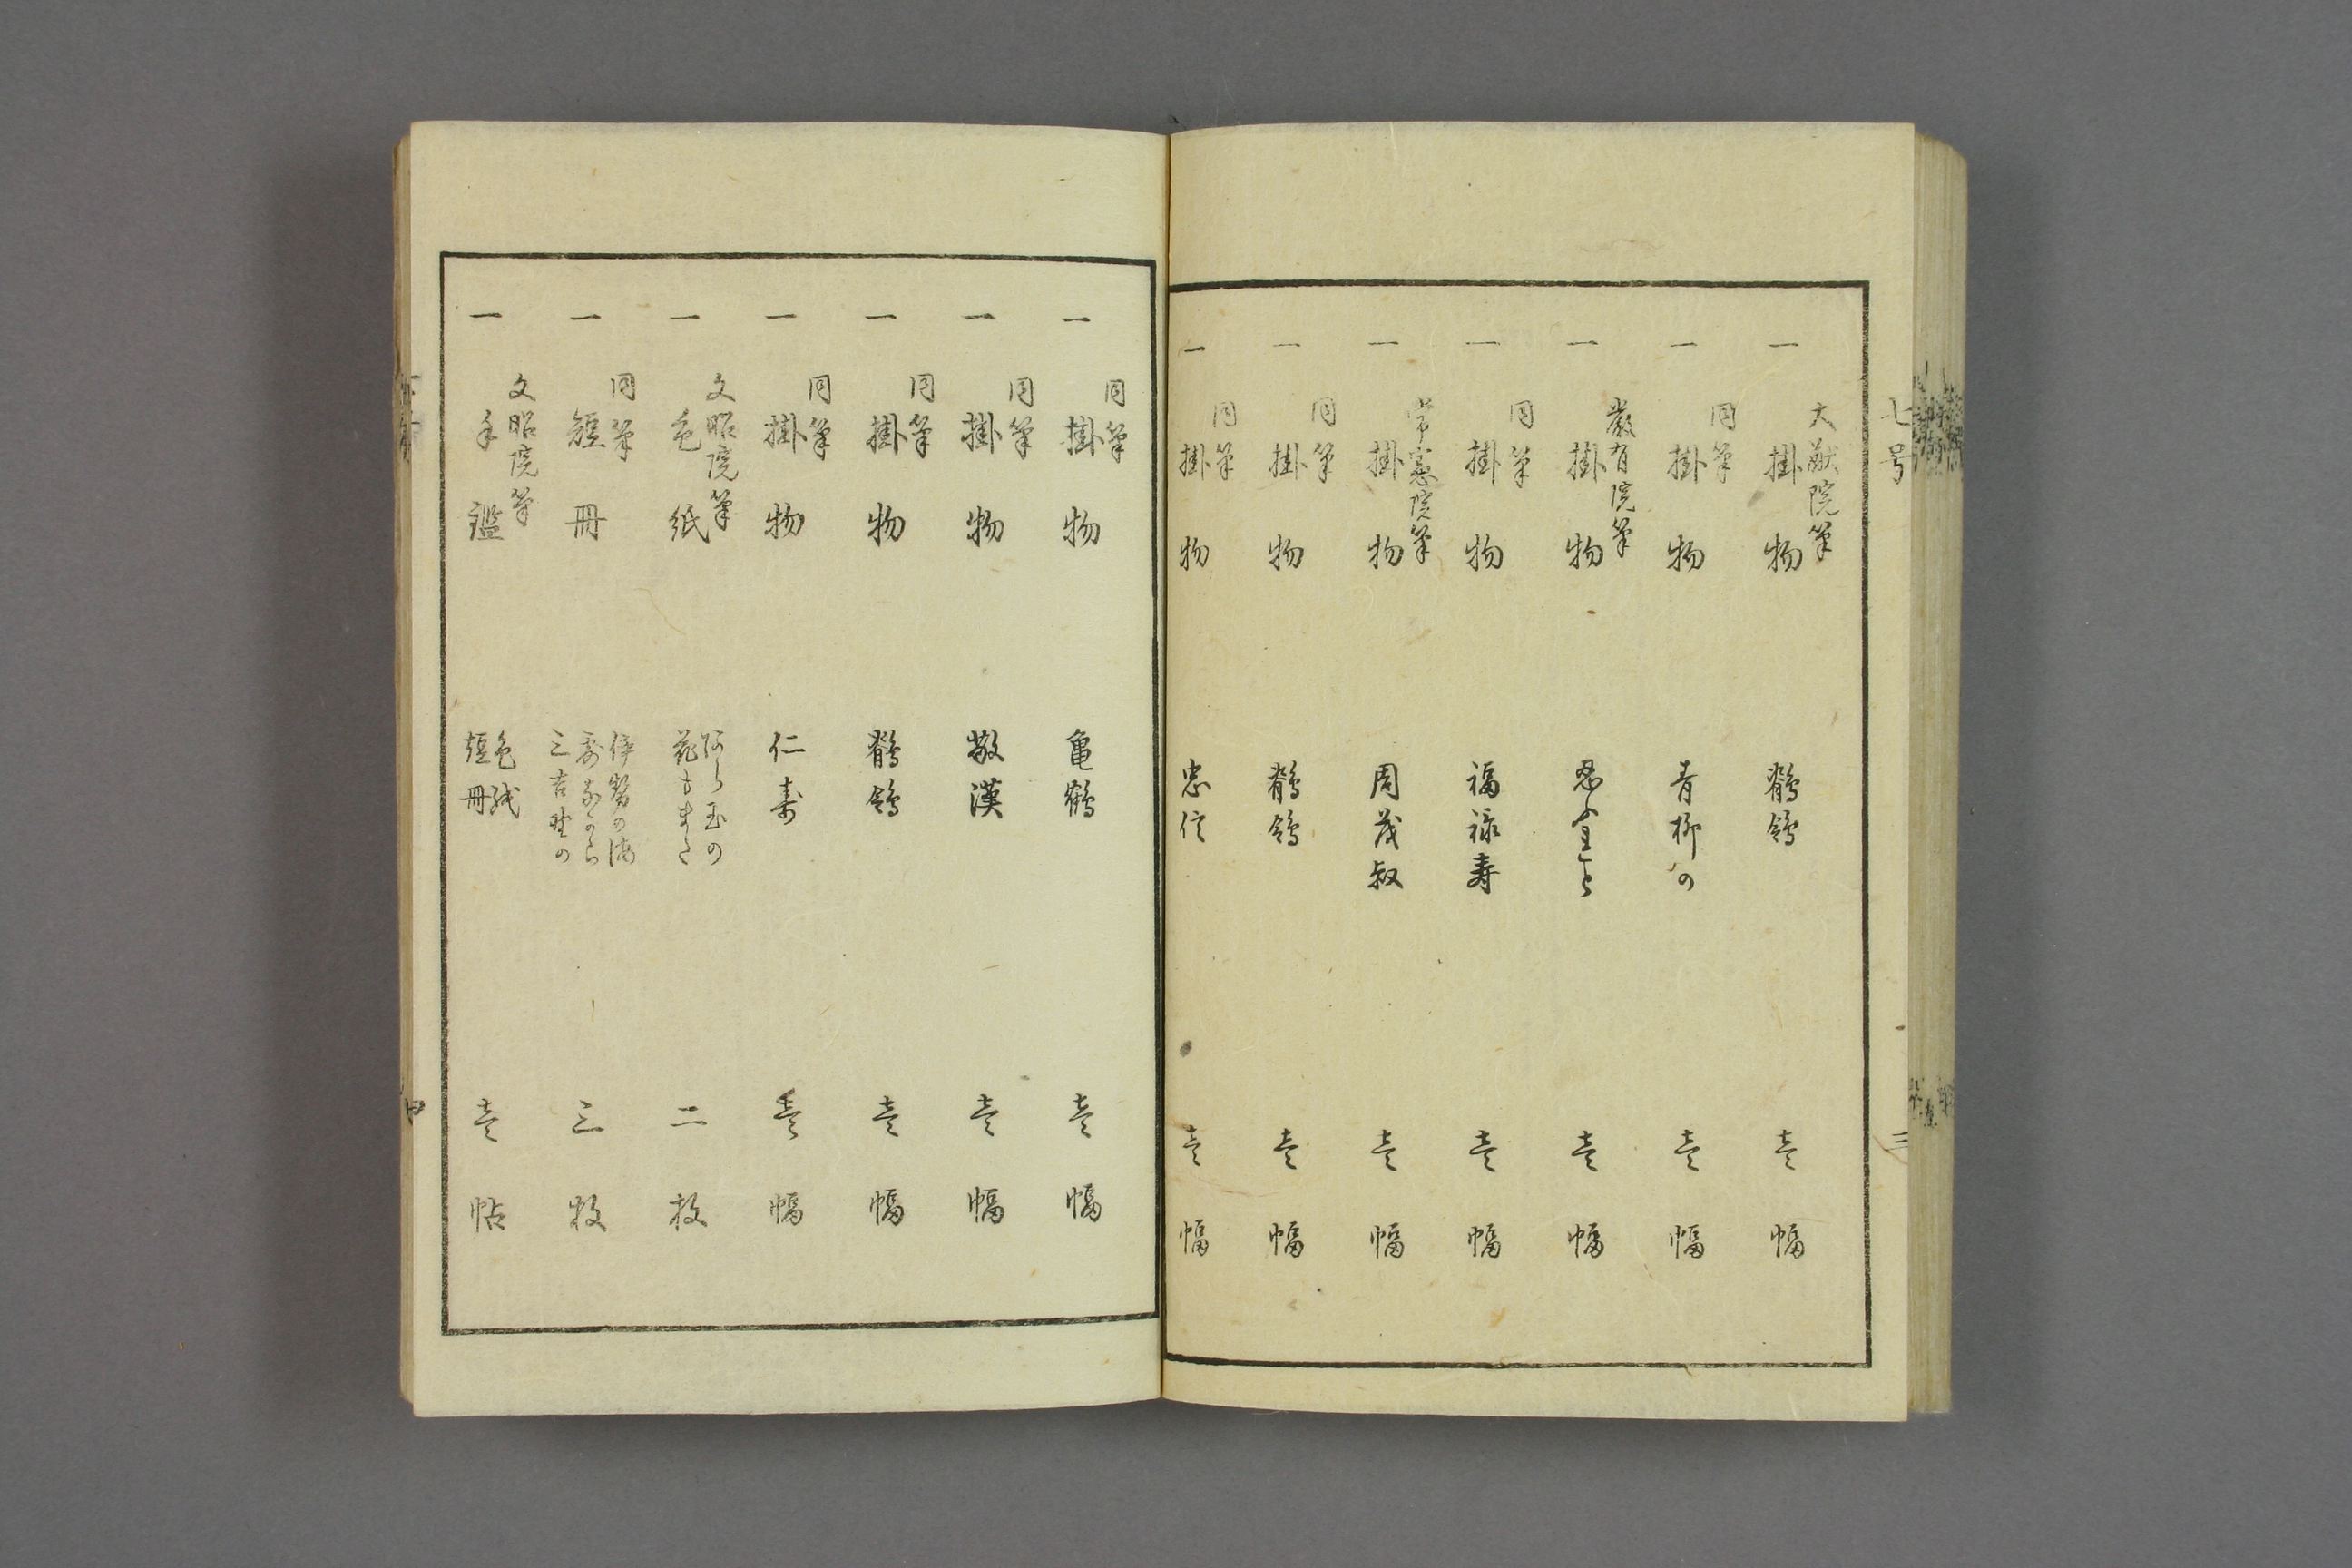 七号
大猷院筆
一 掛物 鶺鴒 壱幅
同筆
一 掛物 青柳の 壱幅
厳有院筆
一 掛物 壱幅
同筆
一 掛物 福禄寿 壱幅
常憲院筆
一 掛物 周茂叔 壱幅
同筆
一 掛物 鶺鴒 壱幅
同筆
一 掛物 忠信 壱幅
三
同筆
一 掛物 亀鶴 壱幅
同筆
一 掛物 壱幅
同筆
一 掛物 鶺鴒 壱幅
同筆
一 掛物 仁寿 壱幅
文昭院筆
一 色紙 玉の
花もまた 二枚
同筆
一 短冊 伊勢の海
三吉野の 三枚
文昭院筆
一 手鑑 色紙
短冊 壱帖